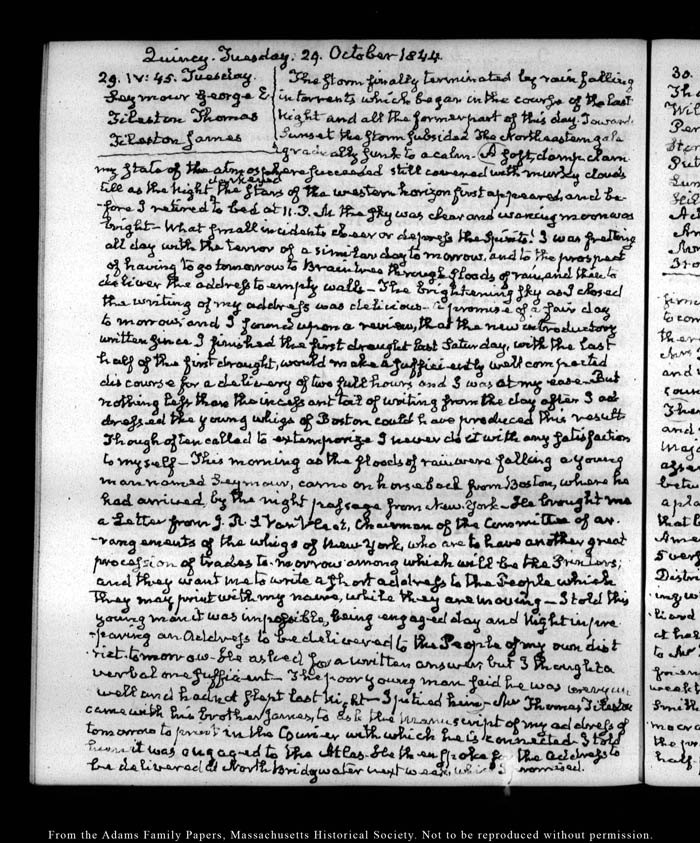 Quincy. Tuesday. 29. October 1844.
29. IV: 45. Tuesday.
Seymour George E
Tileston Thomas
Tileston James
The storm finally terminated by rain falling
in torrents which began in the course of the last
night and all the former part of this day. Toward
Sunset the storm subsided The Northeastern gale
gradually sunk to a calm. A soft, damp, clam
my state of the atmosphere succeeded still covered with murky clouds
till as the night darkened the stars of the western horizon first appeared, and be-
-fore I retired to bed at 11. P.M. the sky was clear and waning moon was
bright. What small incidents cheer or depress the spirits! I was fretting
all day with the terror of a similar day to morrow, and to the prospect
of having to go tomorrow to Braintree through floods of rain, and then to
deliver the address to empty walls. The brightening sky as I closed
the writing of my address was delicious. a promise of a fair day
to morrow; and I found upon a review, that the new introductory
written since I finished the first draught last Saturday, with the last
half of the first draught, would make a sufficiently well compacted
discourse for a delivery of two full hours and I was at my ease. But
nothing less than the incessant toil of writing from the day after I ad
dressed the young whigs of Boston could have produced this result
Though often called to extemporize I never do it with any satisfaction
to myself. This morning as the floods of rain were falling a young
man named Seymour, came on horseback from Boston, where he
had arrived by the night passage from New York. He brought me
a Letter from J. R. S Van Vleet, Chairman of the Committee of ar.
-rangements of the whigs of New York, who are to have another great
procession of trades to-morrow among which will be the Printers;
and they want me to write a short address to the People which
they may print with my name, while they are moving. I told this
young man it was impossible, being engaged day and night in pre
-paring an Address to be delivered to the People of my own dist
-rict tomorrow. He asked for a written answer but I thought a
verbal one sufficient. The poor young man said he was very un
well and had not slept last night. I pitied him. Mr Thomas Tileston
came with his brother James, to ask the manuscript of my address of
tomorrow to print in the Courier with which he is connected I told
him it was engaged to the Atlas. He then spoke for the address to
be delivered at North Bridgwater next week, which I promised.
From the Adams Family Papers, Massachusetts Historical Society. Not to be reproduced without permission.